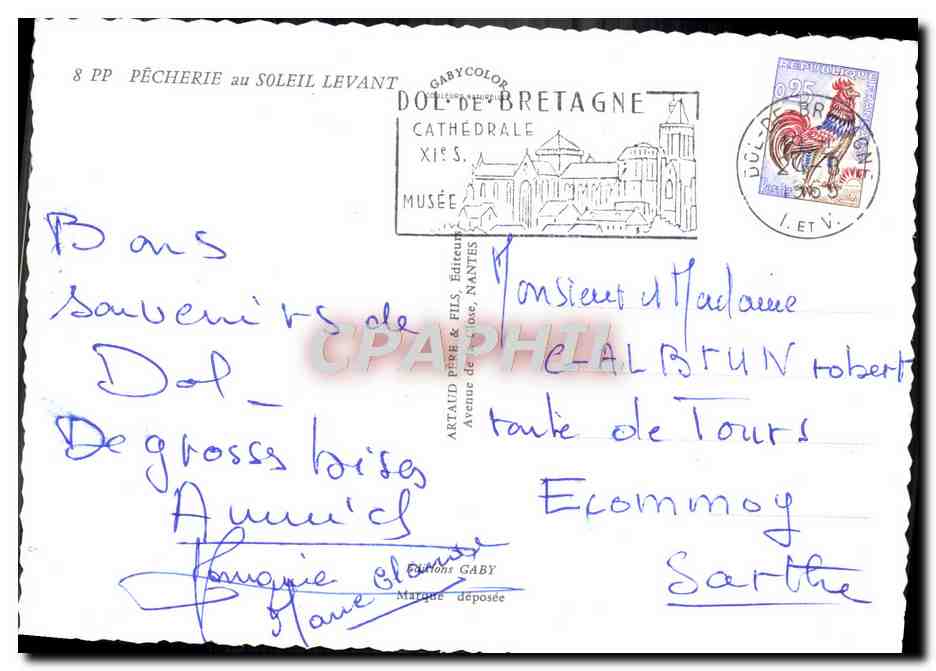 8 PP PÊCHERIE au SOLEIL LEVANT
GABYCOLOR
COULEURS NATURELLES
DOL-DE-BRETAGNE
CATHÉDRALE
XIe S.
MUSÉE
0,25
DOL-DE-BRETAGNE
1965
I. ET V.
Bons
souvenirs de
Dol_
De grosses bises
Annick
Marie
ARTAUD PÈRE & FILS, Éditeurs
Avenue de la Close, NANTES
Monsieur et Madame
robert
route de Tours
Ecommoy
Sarthe
Editions GABY
Marque déposée
CPAPHIL